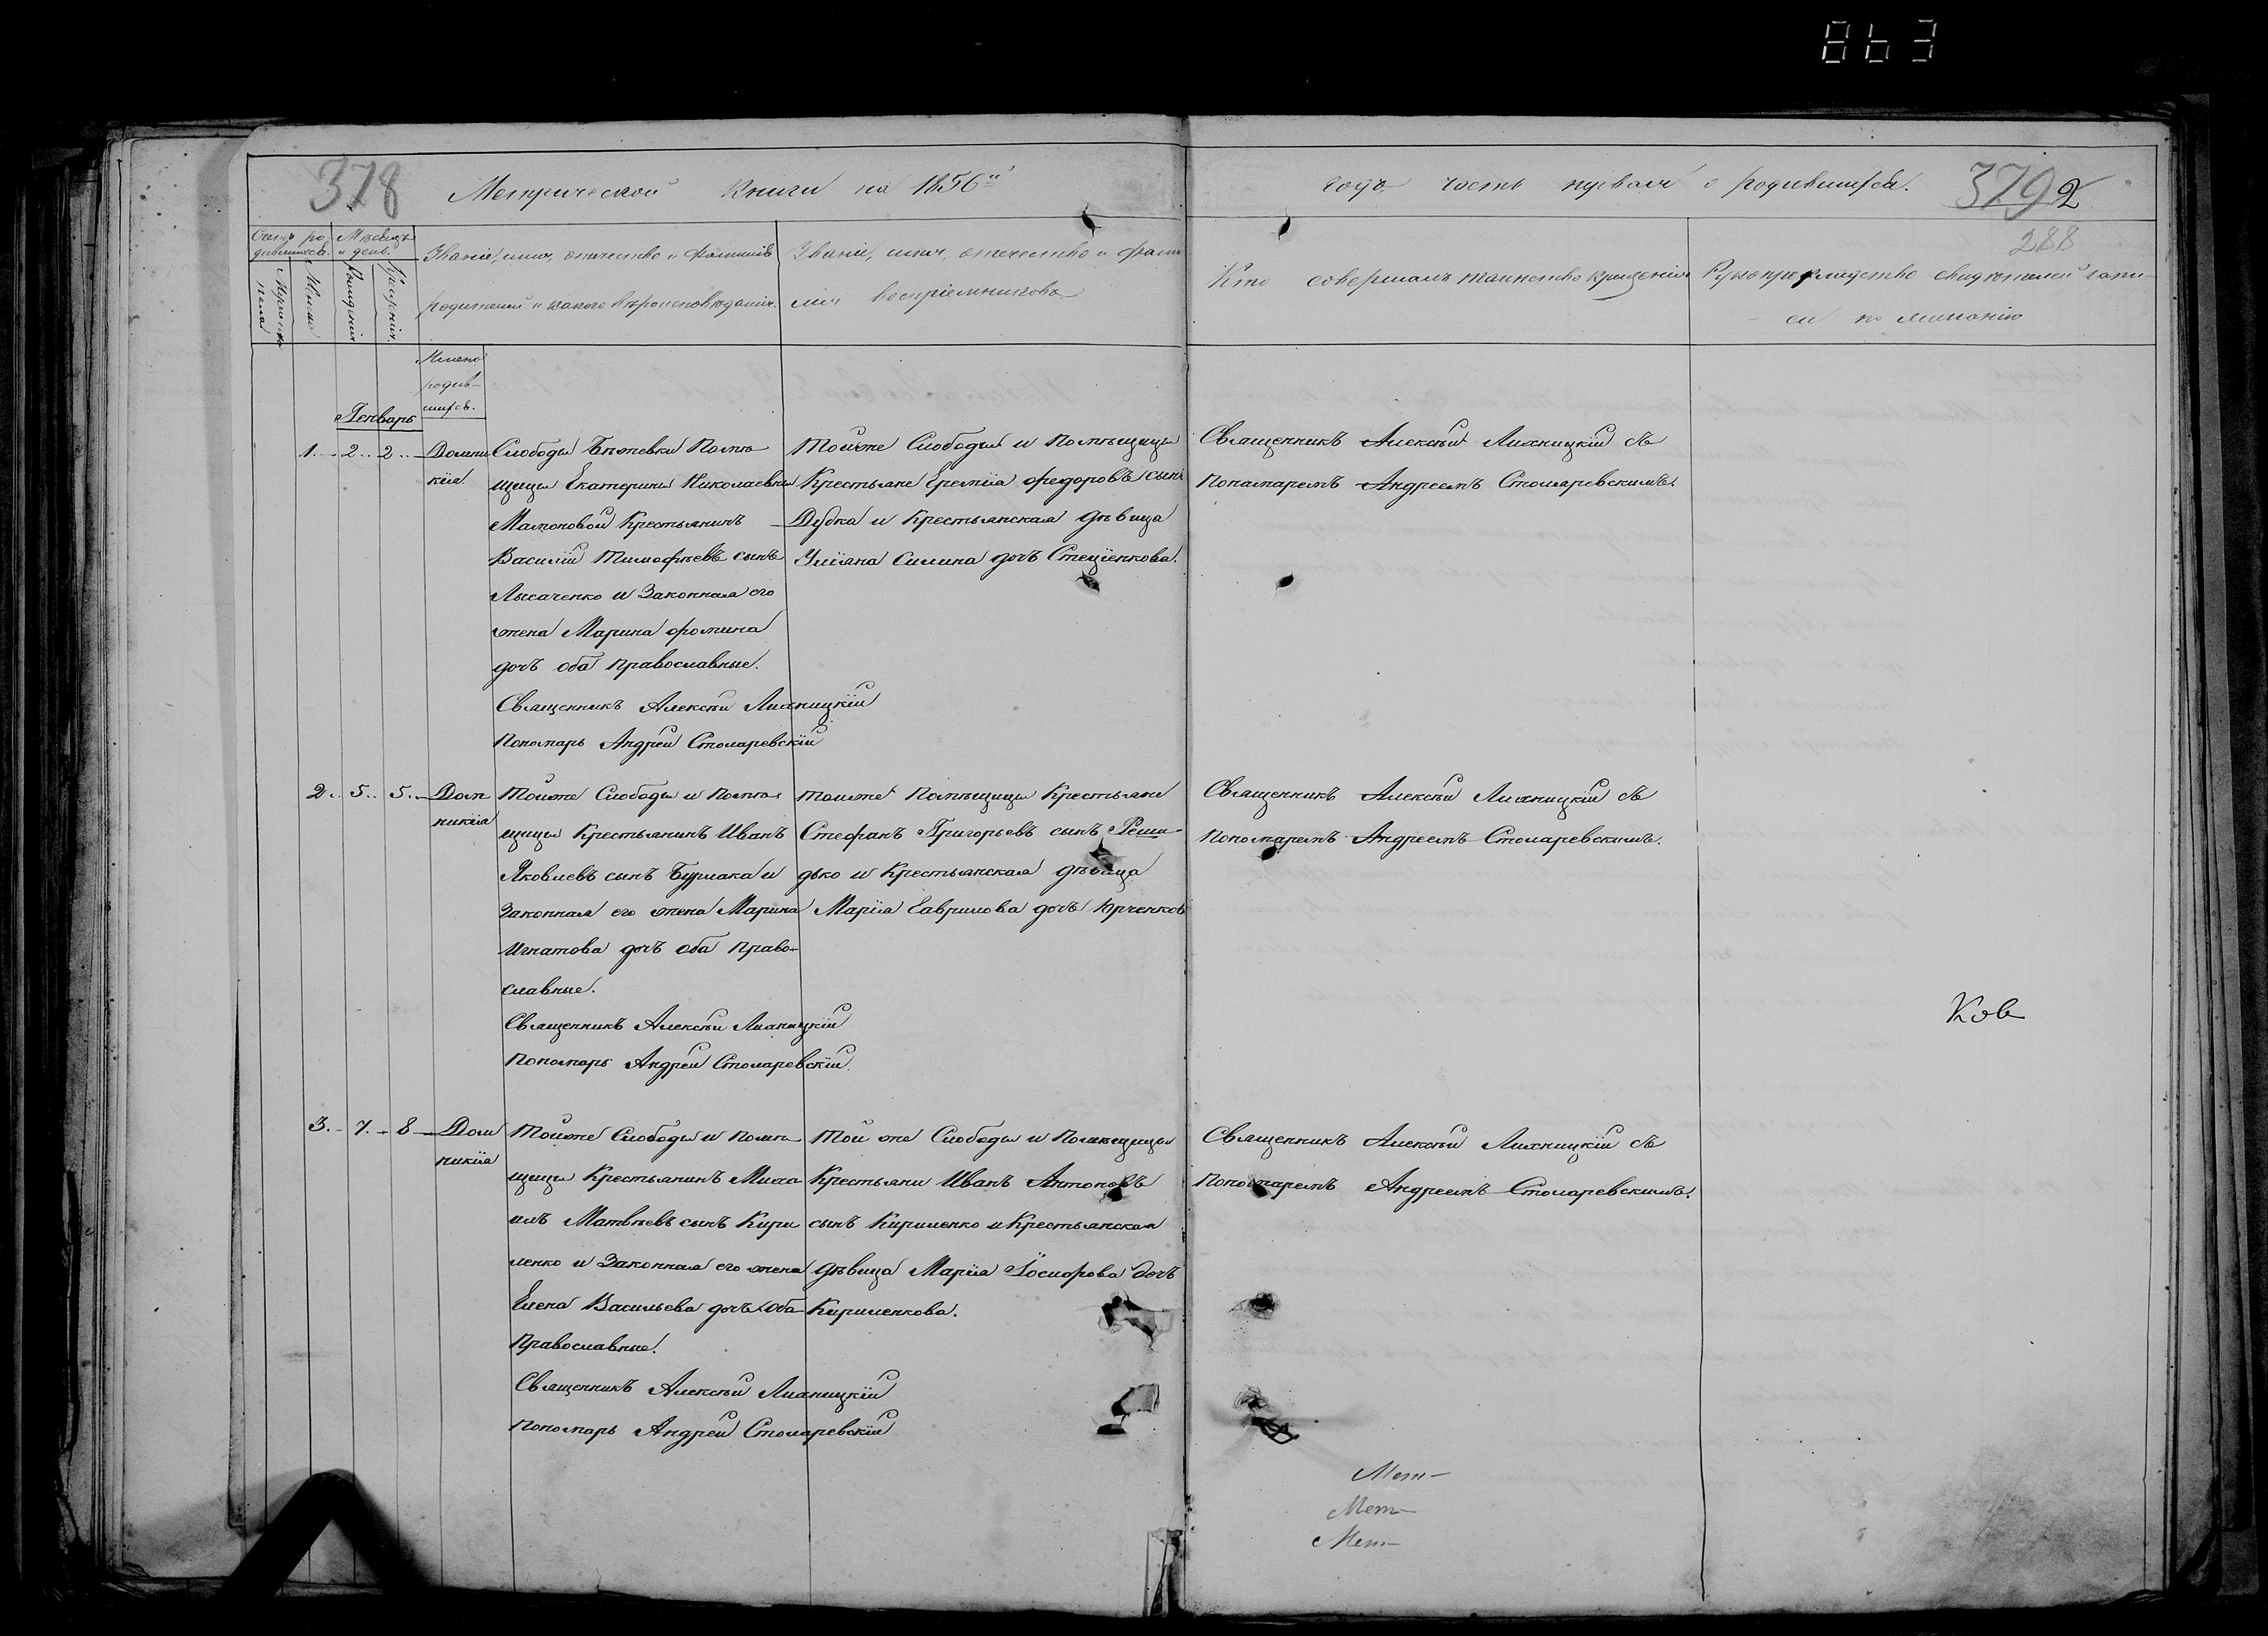 863
378
Метрической Книги на 1856й
годъ часть первая о родившихся.
379 2
288
Счетъ ро-
дившихся.
Мѣсяцъ
и день.
Мужеска
пола
Женска
Рожденія
Крещенія.
Званіе, имя, отчество и фамилія
родителей и какого вѣроисповѣданія.
Званіе, имя, отчество и фами
лія воспріемниковъ
Кто совершалъ таинство крещенія
Рукоприкладство свидѣтелей запи-
си по желанію
Имена
родив-
шихся.
Генварь
1. 2. 2. Домни
кія
Слободы Бѣжевки Помѣ
щицы Екатерины Николаевны
Мамоновой Крестьянинъ
Василій Тимофѣевъ сынъ
Лысаченко и Законная его
жена Марина Фомина
дочь оба Православные.
Священникъ Алексѣй Лихницкій
Пономарь Андрей Столаревскій
Тойже Слободы и Помѣщицы
Крестьяне Еремѣя Федоровъ сынъ
Дубка и Крестьянская дѣвица
Уліяна Силина дочь Стеценкова.
Священникъ Алексѣй Лихницкій съ
Пономаремъ Андреемъ Столаревскимъ.
2. 5. 5. Дом
никія
Тойже Слободы и Помѣ
щицы Крестьянинъ Иванъ
Яковлевъ сынъ Бурлака и
Законная его жена Марина
Игнатова дочь оба Право-
славные.
Священникъ Алексѣй Лихницкій
Пономарь Андрей Столаревскій
тойже Помѣщицы Крестьяне
Стефанъ Григорьевъ сынъ Реши-
дько и Крестьянская дѣвица
Марія Гаврилова дочь Юрченков
Священникъ Алексѣй Лихницкій съ
Пономаремъ Андреемъ Столаревскимъ.
3. 7. 8 Дом
никія
Тойже Слободы и Помѣ
щицы Крестьянинъ Миха
илъ Матвѣевъ сынъ Кири
ленко и Законная его жена
Елена Васильева дочь Оба
Православные.
Священникъ Алексѣй Лихницкій
Пономарь Андрей Столаревскій
Той же Слободы и Помѣщицы
Крестьяни Иванъ Антоновъ
сынъ Кириленко и Крестьянская
дѣвица Марія дочь
Кириленкова.
Священникъ Алексѣй Лихницкій съ
Пономаремъ Андреемъ Столаревскимъ.
Ков
Мет-
Мет-
Мет-